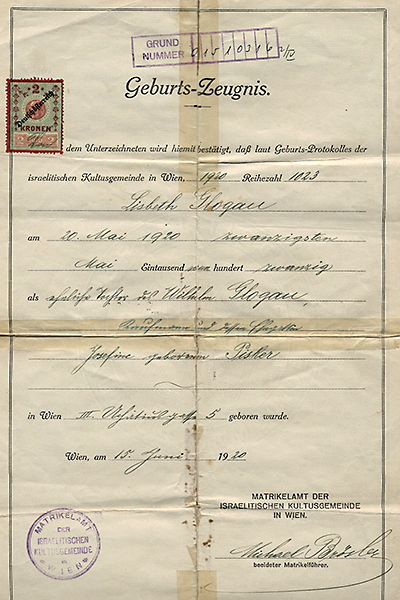 GRUND
NUMMER
Geburts-Zeugnis.
2
KRONEN
Deutschösterreich
dem Unterzeichneten wird hiemit bestätigt, daß laut Geburts-Protokolles der
israelitischen Kultusgemeinde in Wien, 1920 Reihezahl 1023
Lisbeth Glogau
am 20. Mai 1920 zwanzigsten
Mai Eintausend neun hundert zwanzig
als eheliche Tochter des Wilhelm Glogau,
Kaufmann und dessen Ehegattin
Josefine geborenen Pisker
in Wien III. 5 geboren wurde.
Wien, am 15. Juni 1920
MATRIKELAMT DER
ISRAELITISCHEN KULTUSGEMEINDE
IN WIEN.
MATRIKELAMT
DER
ISRAELITISCHEN
KULTUSGEMEINDE
in
WIEN
Michael
beeideter Matrikelführer.